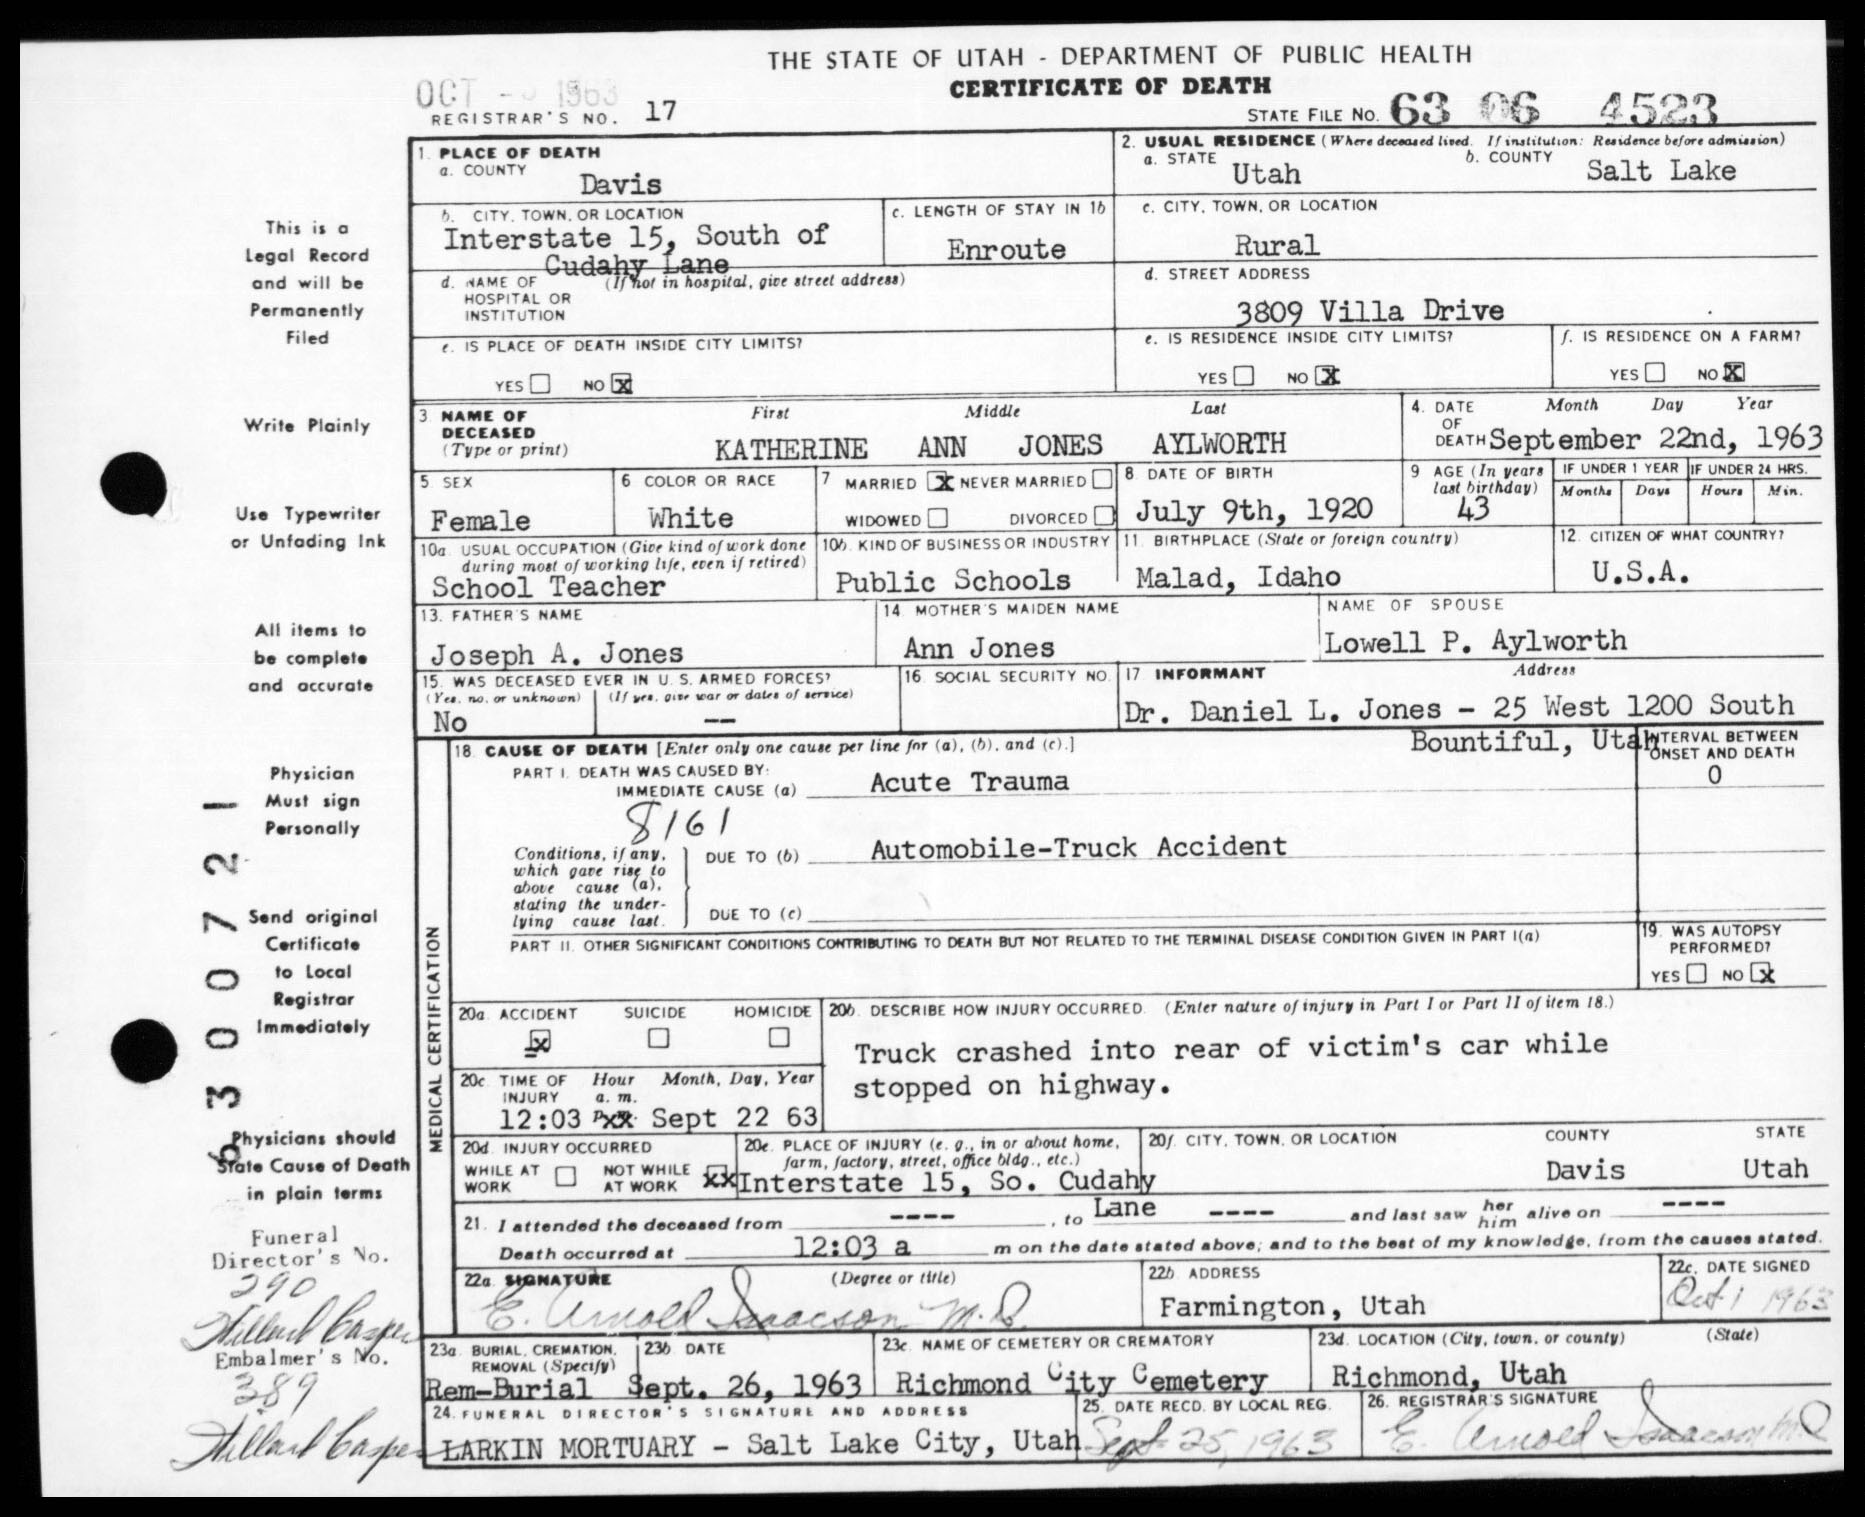 THE STATE OF UTAH - DEPARTMENT OF PUBLIC HEALTH
CERTIFICATE OF DEATH
OCT 1963
REGISTRAR'S NO. 17
STATE FILE NO. 63 06 4523
This is a
Legal Record
and will be
Permanently
Filed
Write Plainly
Use Typewriter
or Unfading Ink
All items to
be complete
and accurate
Physician
Must sign
Personally
Send original
Certificate
to Local
Registrar
Immediately
Physicians should
State Cause of Death
in plain terms
6307021
Funeral
Director's No.
290
Willard Casper
Embalmer's No.
389
Willard Casper
1. PLACE OF DEATH
a. COUNTY
Davis
2. USUAL RESIDENCE (Where deceased lived. If institution: Residence before admission)
a. STATE Utah b. COUNTY Salt Lake
b. CITY, TOWN, OR LOCATION
Interstate 15, South of
Cudahy Lane
c. LENGTH OF STAY IN 1b
Enroute
c. CITY, TOWN, OR LOCATION
Rural
d. NAME OF (If not in hospital, give street address)
HOSPITAL OR
INSTITUTION
d. STREET ADDRESS
3809 Villa Drive
e. IS PLACE OF DEATH INSIDE CITY LIMITS?
YES NO X
e. IS RESIDENCE INSIDE CITY LIMITS?
YES NO X
f. IS RESIDENCE ON A FARM?
YES NO X
3 NAME OF First Middle Last
DECEASED
(Type or print) KATHERINE ANN JONES AYLWORTH
4. DATE Month Day Year
OF
DEATH September 22nd, 1963
5. SEX
Female
6 COLOR OR RACE
White
7 MARRIED X NEVER MARRIED
WIDOWED DIVORCED
8 DATE OF BIRTH
July 9th, 1920
9 AGE (In years
last birthday)
43
IF UNDER 1 YEAR IF UNDER 24 HRS.
Months Days Hours Min.
10a. USUAL OCCUPATION (Give kind of work done
during most of working life, even if retired)
School Teacher
10b. KIND OF BUSINESS OR INDUSTRY
Public Schools
11. BIRTHPLACE (State or foreign country)
Malad, Idaho
12. CITIZEN OF WHAT COUNTRY?
U.S.A.
13. FATHER'S NAME
Joseph A. Jones
14 MOTHER'S MAIDEN NAME
Ann Jones
NAME OF SPOUSE
Lowell P. Aylworth
15. WAS DECEASED EVER IN U.S. ARMED FORCES?
(Yes, no, or unknown) (If yes, give war or dates of service)
No --
16. SOCIAL SECURITY NO.
17 INFORMANT Address
Dr. Daniel L. Jones - 25 West 1200 South
Bountiful, Utah
MEDICAL CERTIFICATION
18. CAUSE OF DEATH [Enter only one cause per line for (a), (b), and (c).]
INTERVAL BETWEEN
ONSET AND DEATH
PART I. DEATH WAS CAUSED BY:
IMMEDIATE CAUSE (a) Acute Trauma 0
8161
Conditions, if any,
which gave rise to
above cause (a),
stating the under-
lying cause last.
DUE TO (b) Automobile-Truck Accident
DUE TO (c)
PART II. OTHER SIGNIFICANT CONDITIONS CONTRIBUTING TO DEATH BUT NOT RELATED TO THE TERMINAL DISEASE CONDITION GIVEN IN PART I(a)
19. WAS AUTOPSY
PERFORMED?
YES NO X
20a. ACCIDENT SUICIDE HOMICIDE
X
20b. DESCRIBE HOW INJURY OCCURRED. (Enter nature of injury in Part I or Part II of item 18.)
Truck crashed into rear of victim's car while
stopped on highway.
20c. TIME OF Hour Month, Day, Year
INJURY a. m.
12:03 p.m. xx Sept 22 63
20d. INJURY OCCURRED
WHILE AT NOT WHILE
WORK AT WORK xx
20e. PLACE OF INJURY (e. g., in or about home,
farm, factory, street, office bldg., etc.)
Interstate 15, So. Cudahy
Lane
20f. CITY, TOWN, OR LOCATION COUNTY STATE
Davis Utah
21. I attended the deceased from ----, to ---- and last saw her him alive on ----
Death occurred at 12:03 a m on the date stated above; and to the best of my knowledge, from the causes stated.
22a. SIGNATURE (Degree or title)
E. Arnold Isaacson M.D.
22b. ADDRESS
Farmington, Utah
22c. DATE SIGNED
Oct 1 1963
23a. BURIAL, CREMATION,
REMOVAL (Specify)
Rem-Burial
23b. DATE
Sept. 26, 1963
23c. NAME OF CEMETERY OR CREMATORY
Richmond City Cemetery
23d. LOCATION (City, town, or county) (State)
Richmond, Utah
24. FUNERAL DIRECTOR'S SIGNATURE AND ADDRESS
LARKIN MORTUARY - Salt Lake City, Utah
25. DATE RECD. BY LOCAL REG.
Sept 25, 1963
26. REGISTRAR'S SIGNATURE
E. Arnold Isaacson M.D.